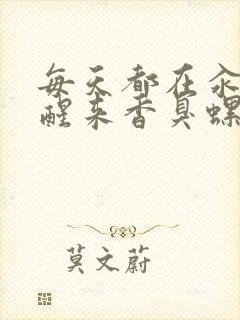 每天都在汆
醒来香臭螺
莫文蔚